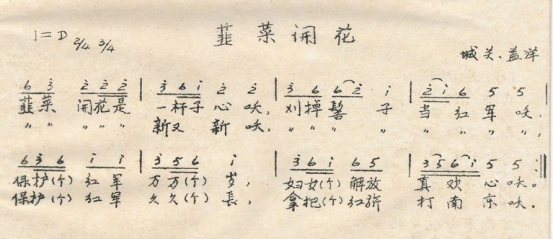 韮菜开花
1=D 2/4 3/4
城关.盖洋
6 3 2 2 2 | 3 6 i 2 2 | 3 6 6 2 i | 2 i 6 5 5 |
韮菜 开花是 一杆子 心呋, 刈掉髻 子 当 红 军 呋.
" " " " " 新又 新 呋, " " " " " " " "
6 3 6 i i | 3 5 6 i | 3 6 i 6 5 | 3 5 6 i 5 5 :||
保护(个)红军 万万(个) 岁, 妇女(个)解放 真 欢 心 呋。
保护(个)红军 久久(个) 長, 拿把(个)红旂 打 南 京 呋。